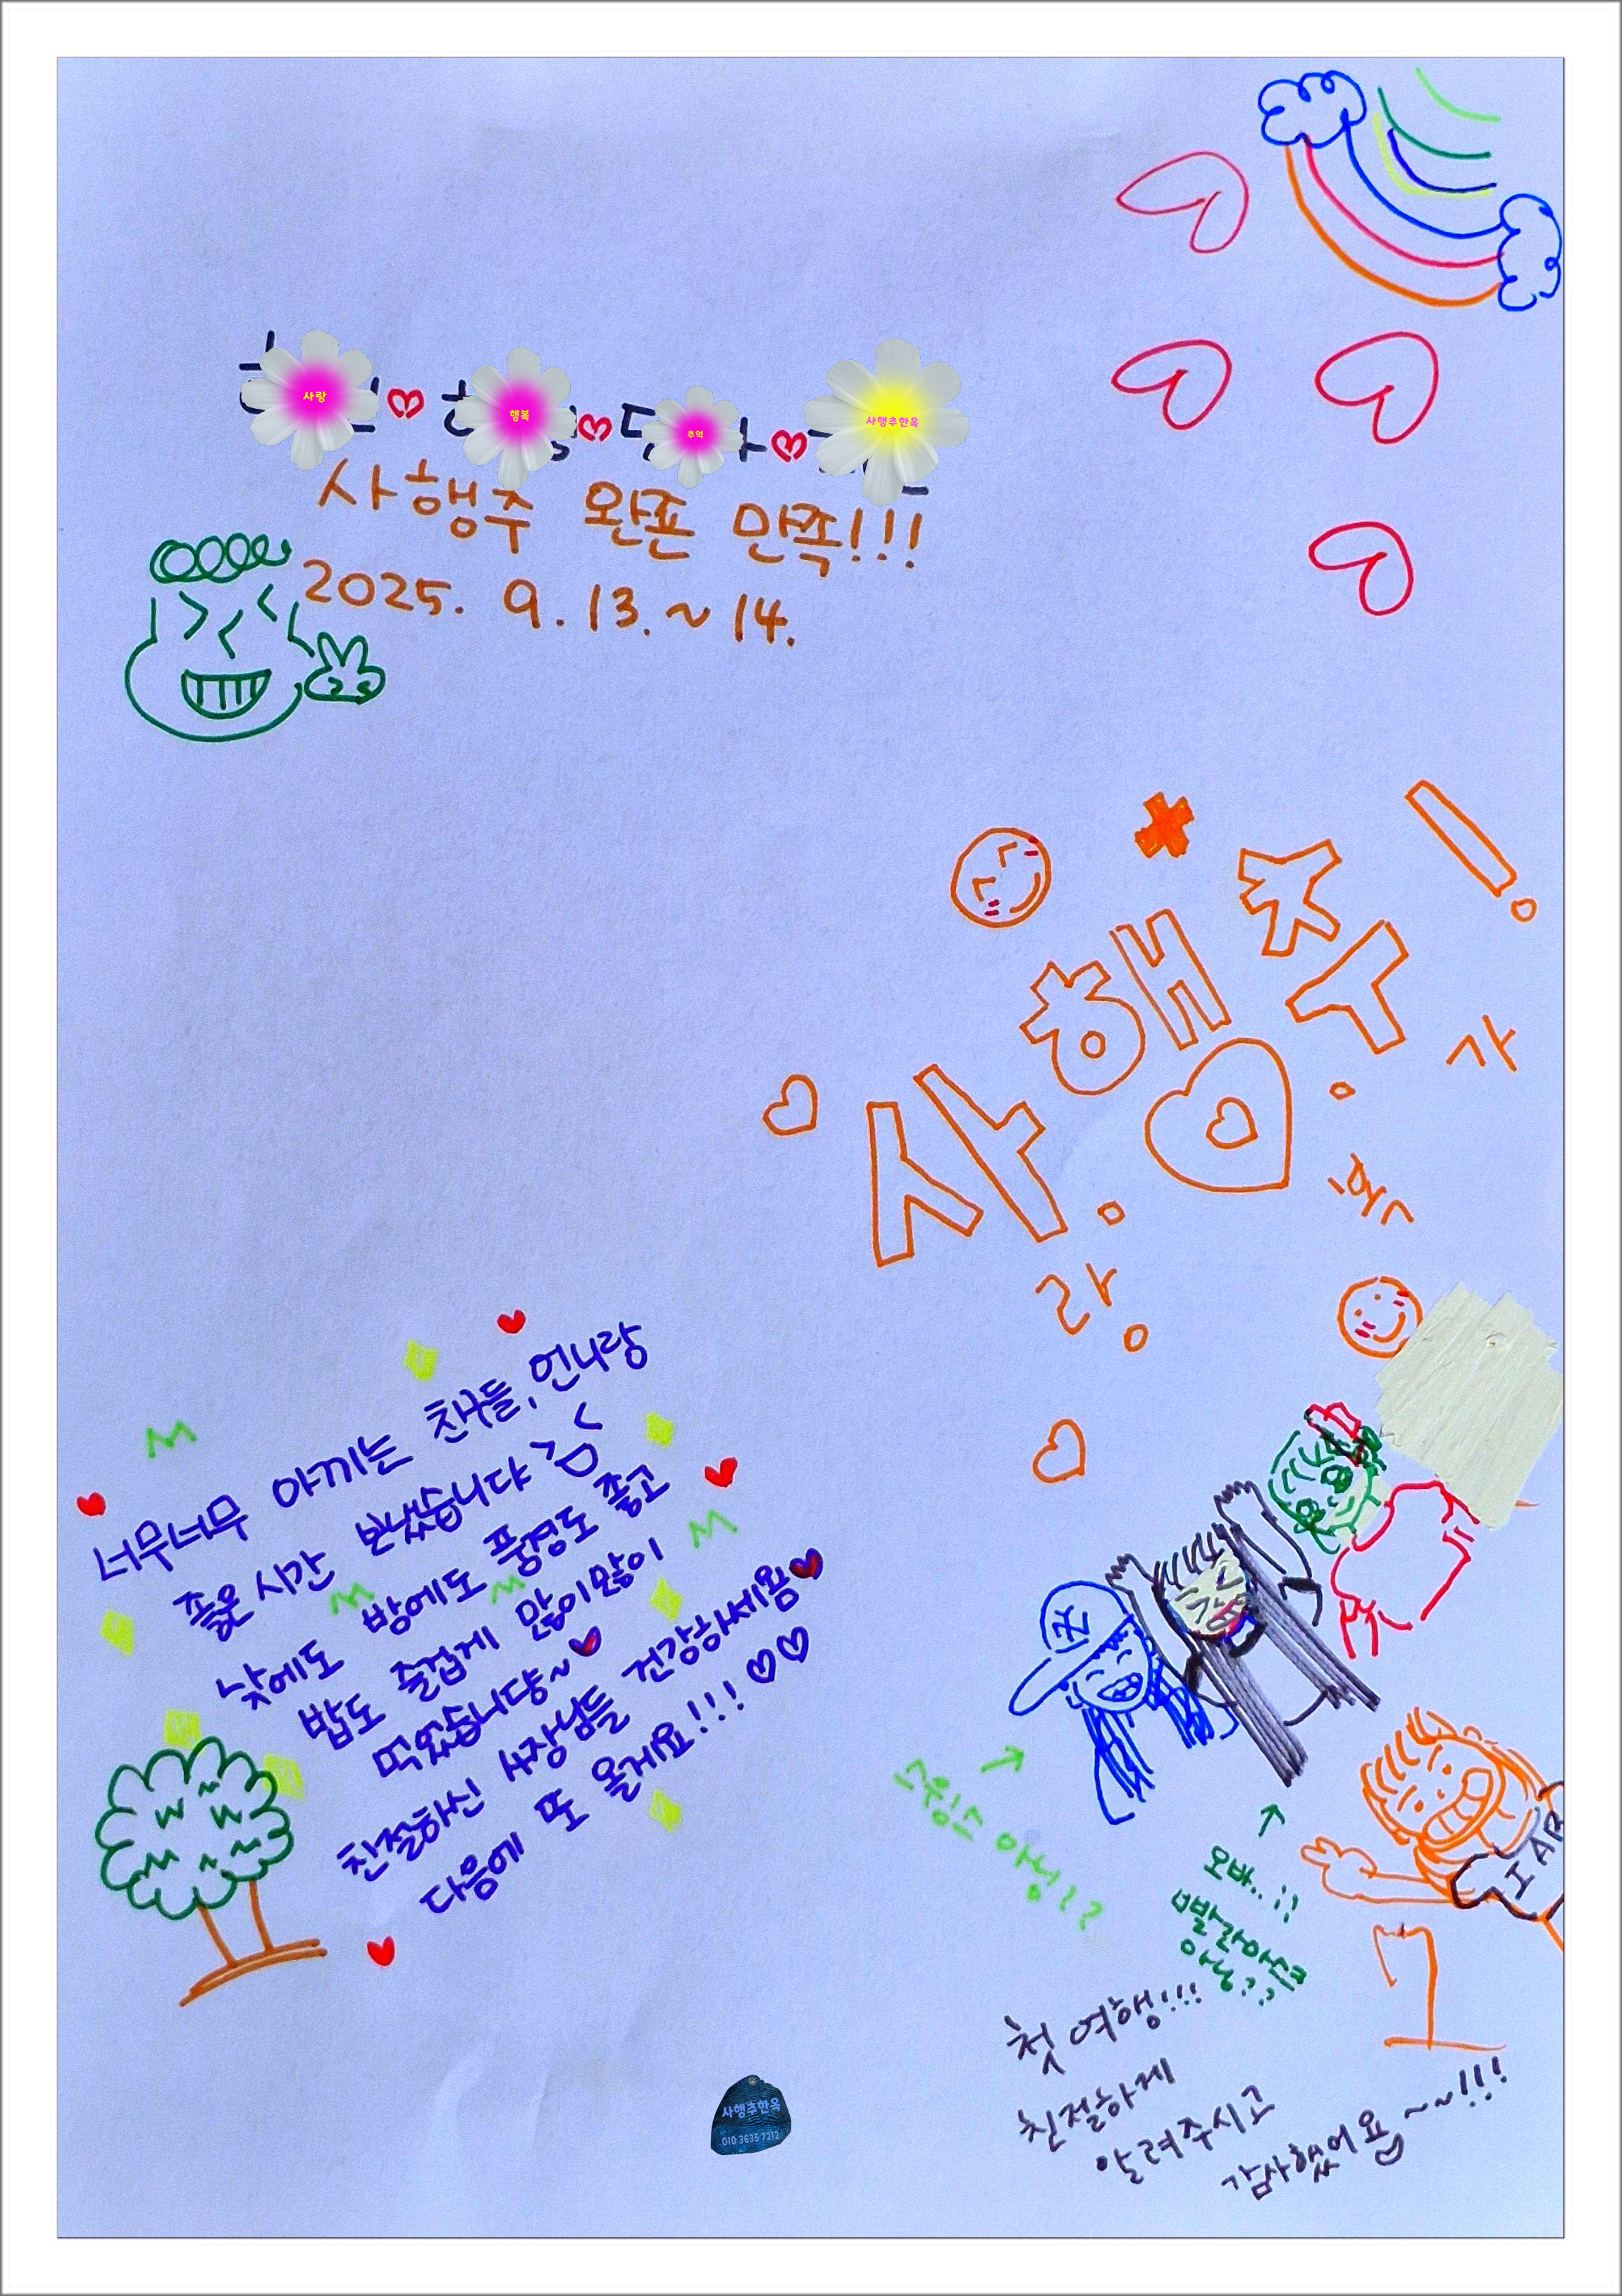 사랑
행복
추억
사행추한옥
사행추 완죤 만족!!!
2025. 9. 13. ~ 14.
사행추!
사랑. 행복. 추억
너무너무 아끼는 친구들, 언니랑
좋은 시간 보냈습니다 >D<
낮에도 밤에도 풍경도 좋고
밥도 즐겁게 많이많이
먹었습니당~
친절하신 사장님들 건강하세욤
다음에 또 올게요!!! ♡♡
아님??
오빠..;;
빨간마스크
아님??
첫 여행!!!
친절하게
알려주시고
감사했어요~~!!!
사행추한옥
010 3635 7212